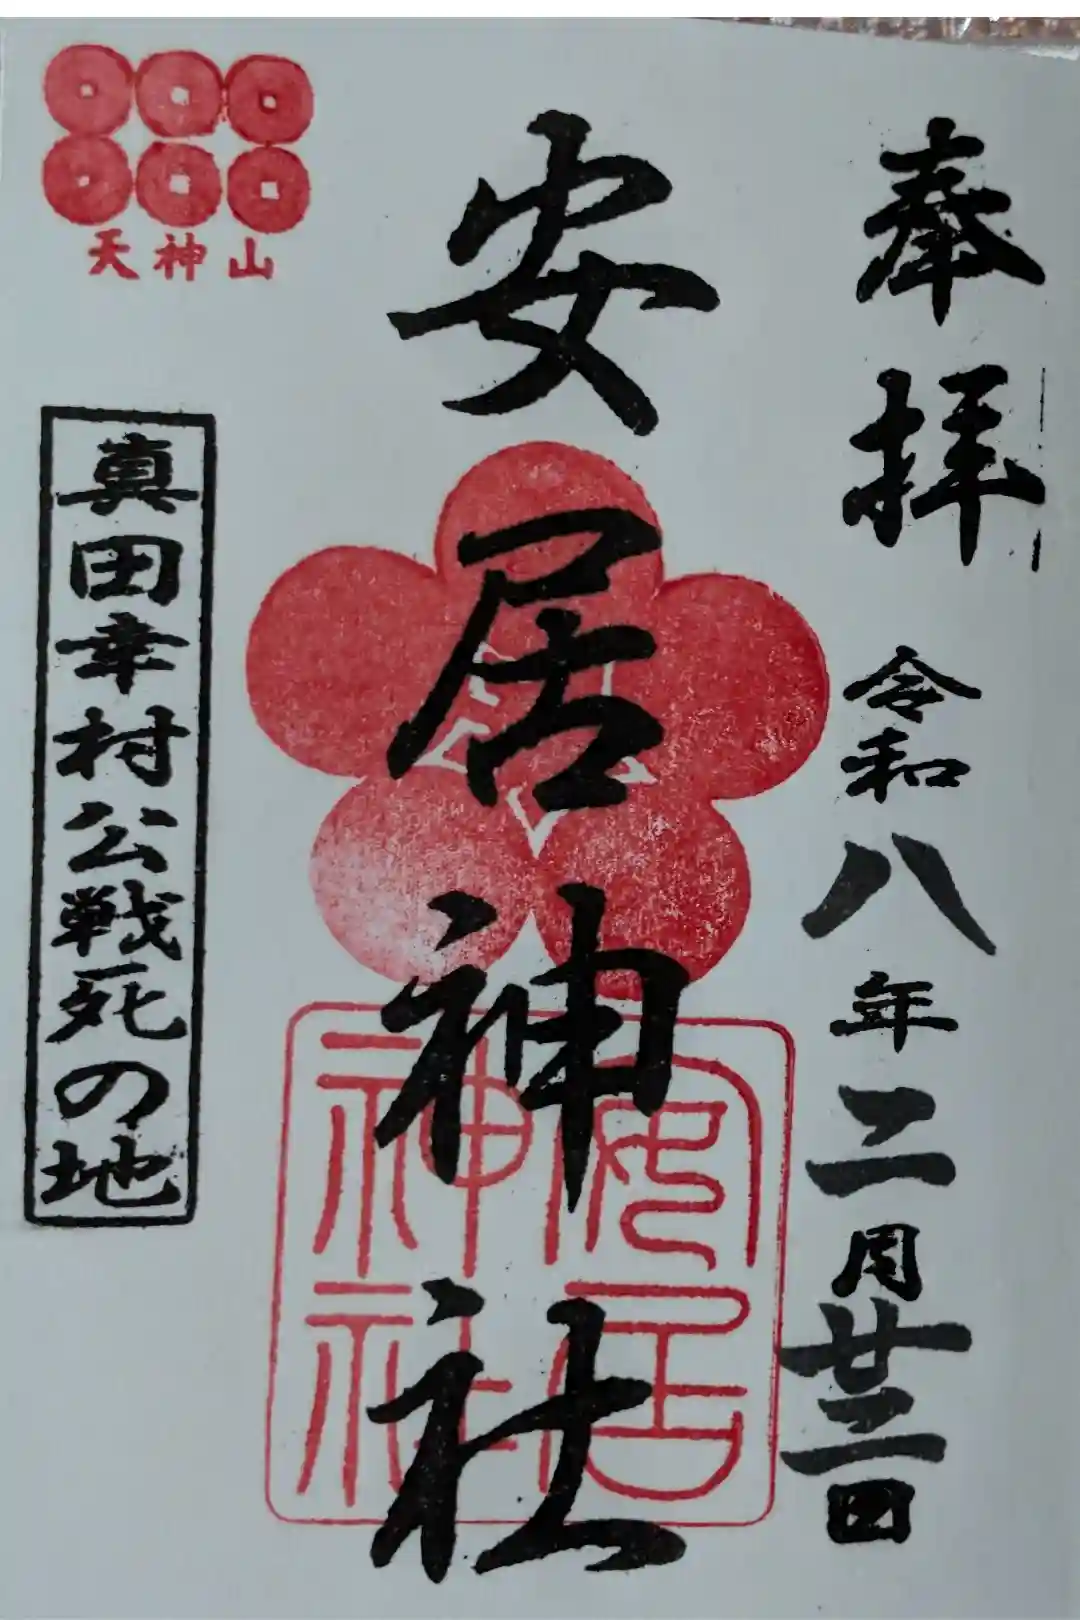 奉拝
令和八年二月廿三日
安居神社
安居
神社
天神山
真田幸村公戦死の地